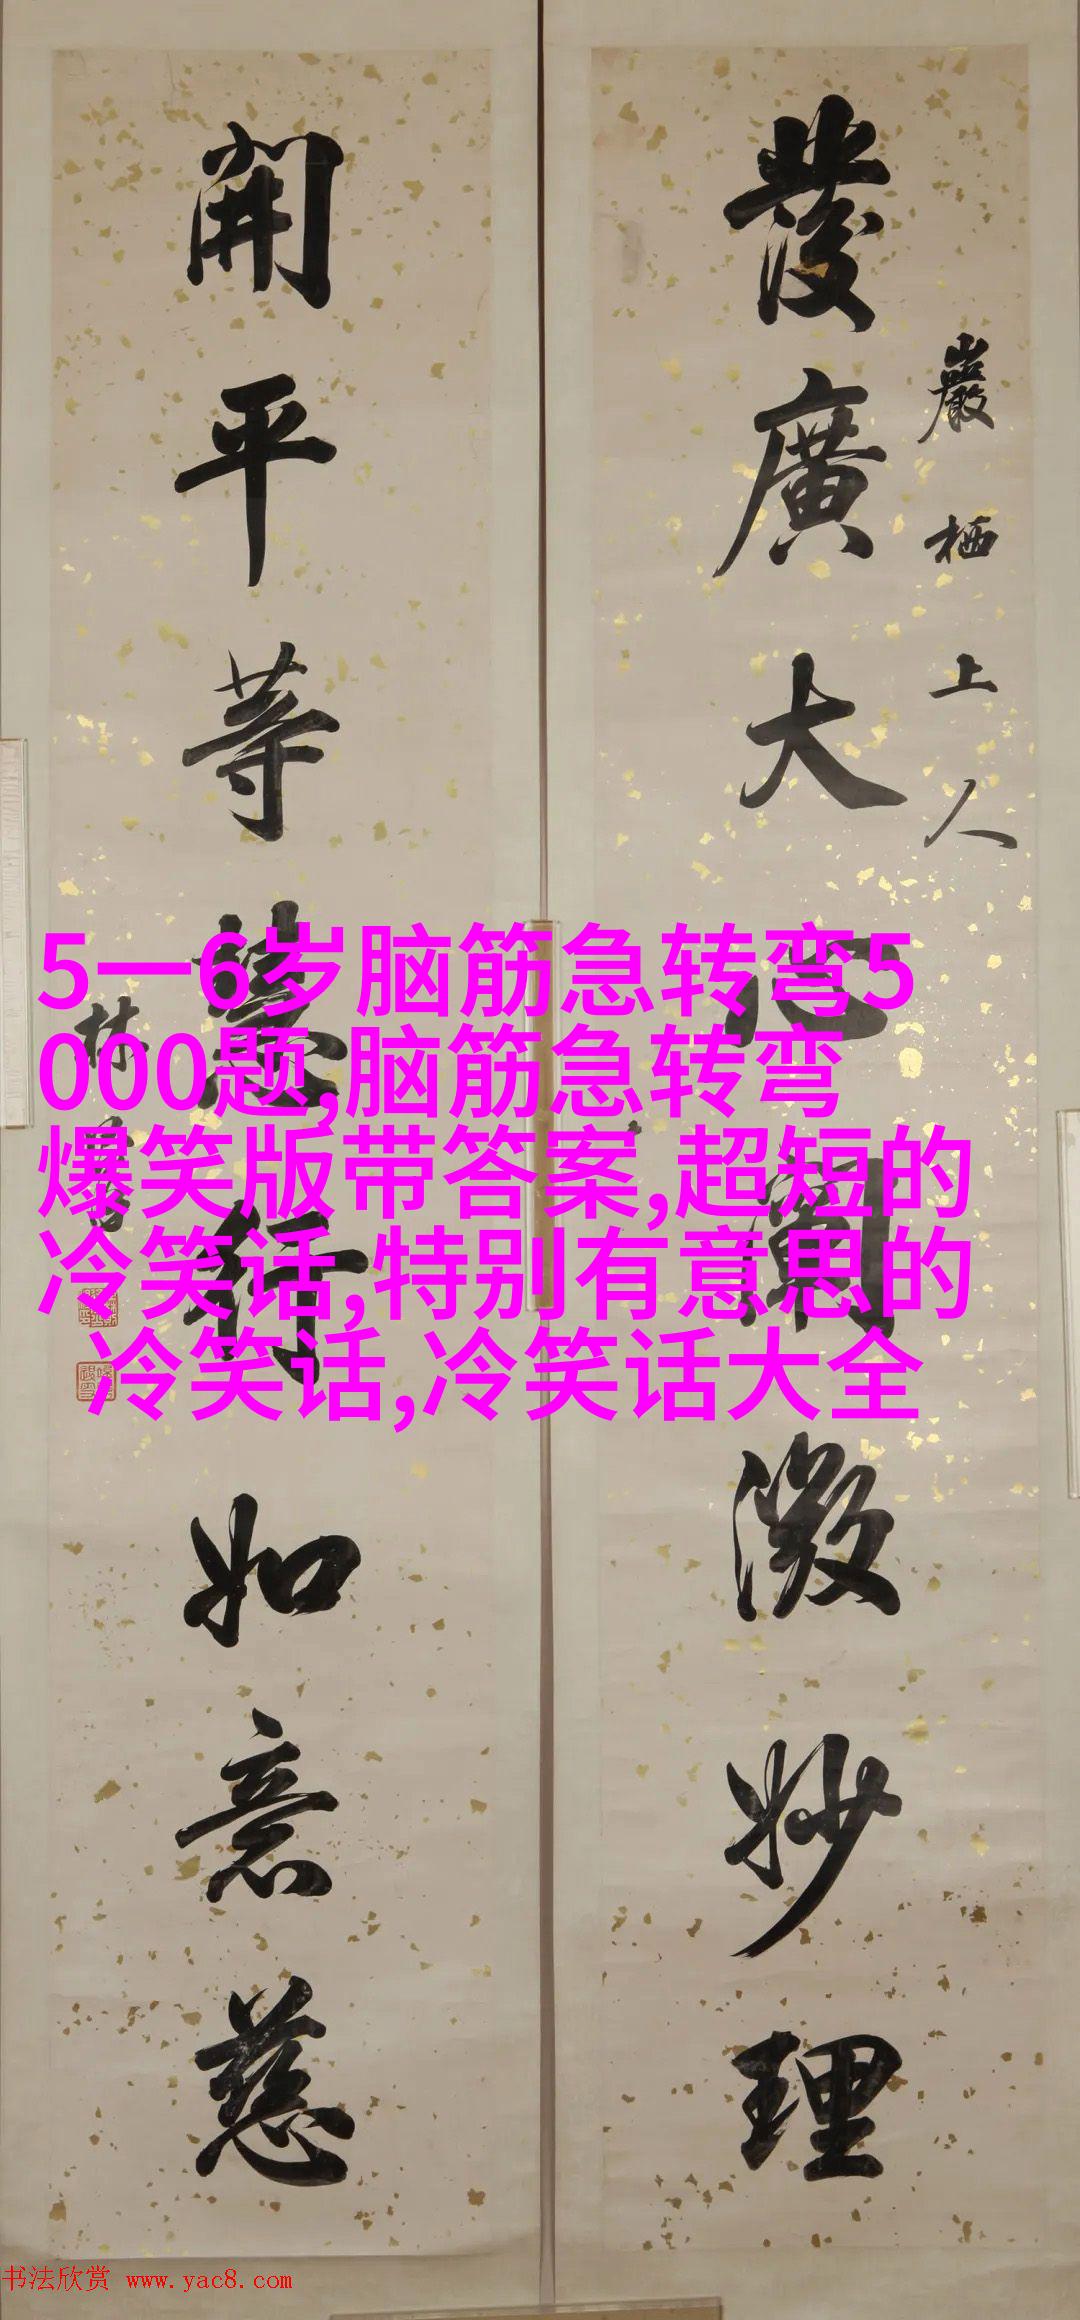 巖栖上人
發廣大心闡微妙理
開平等慧行如意慈
林
5一6岁脑筋急转弯5
000题,脑筋急转弯
爆笑版带答案,超短的
冷笑话,特别有意思的
冷笑话,冷笑话大全
书法欣赏 www.yac8.com